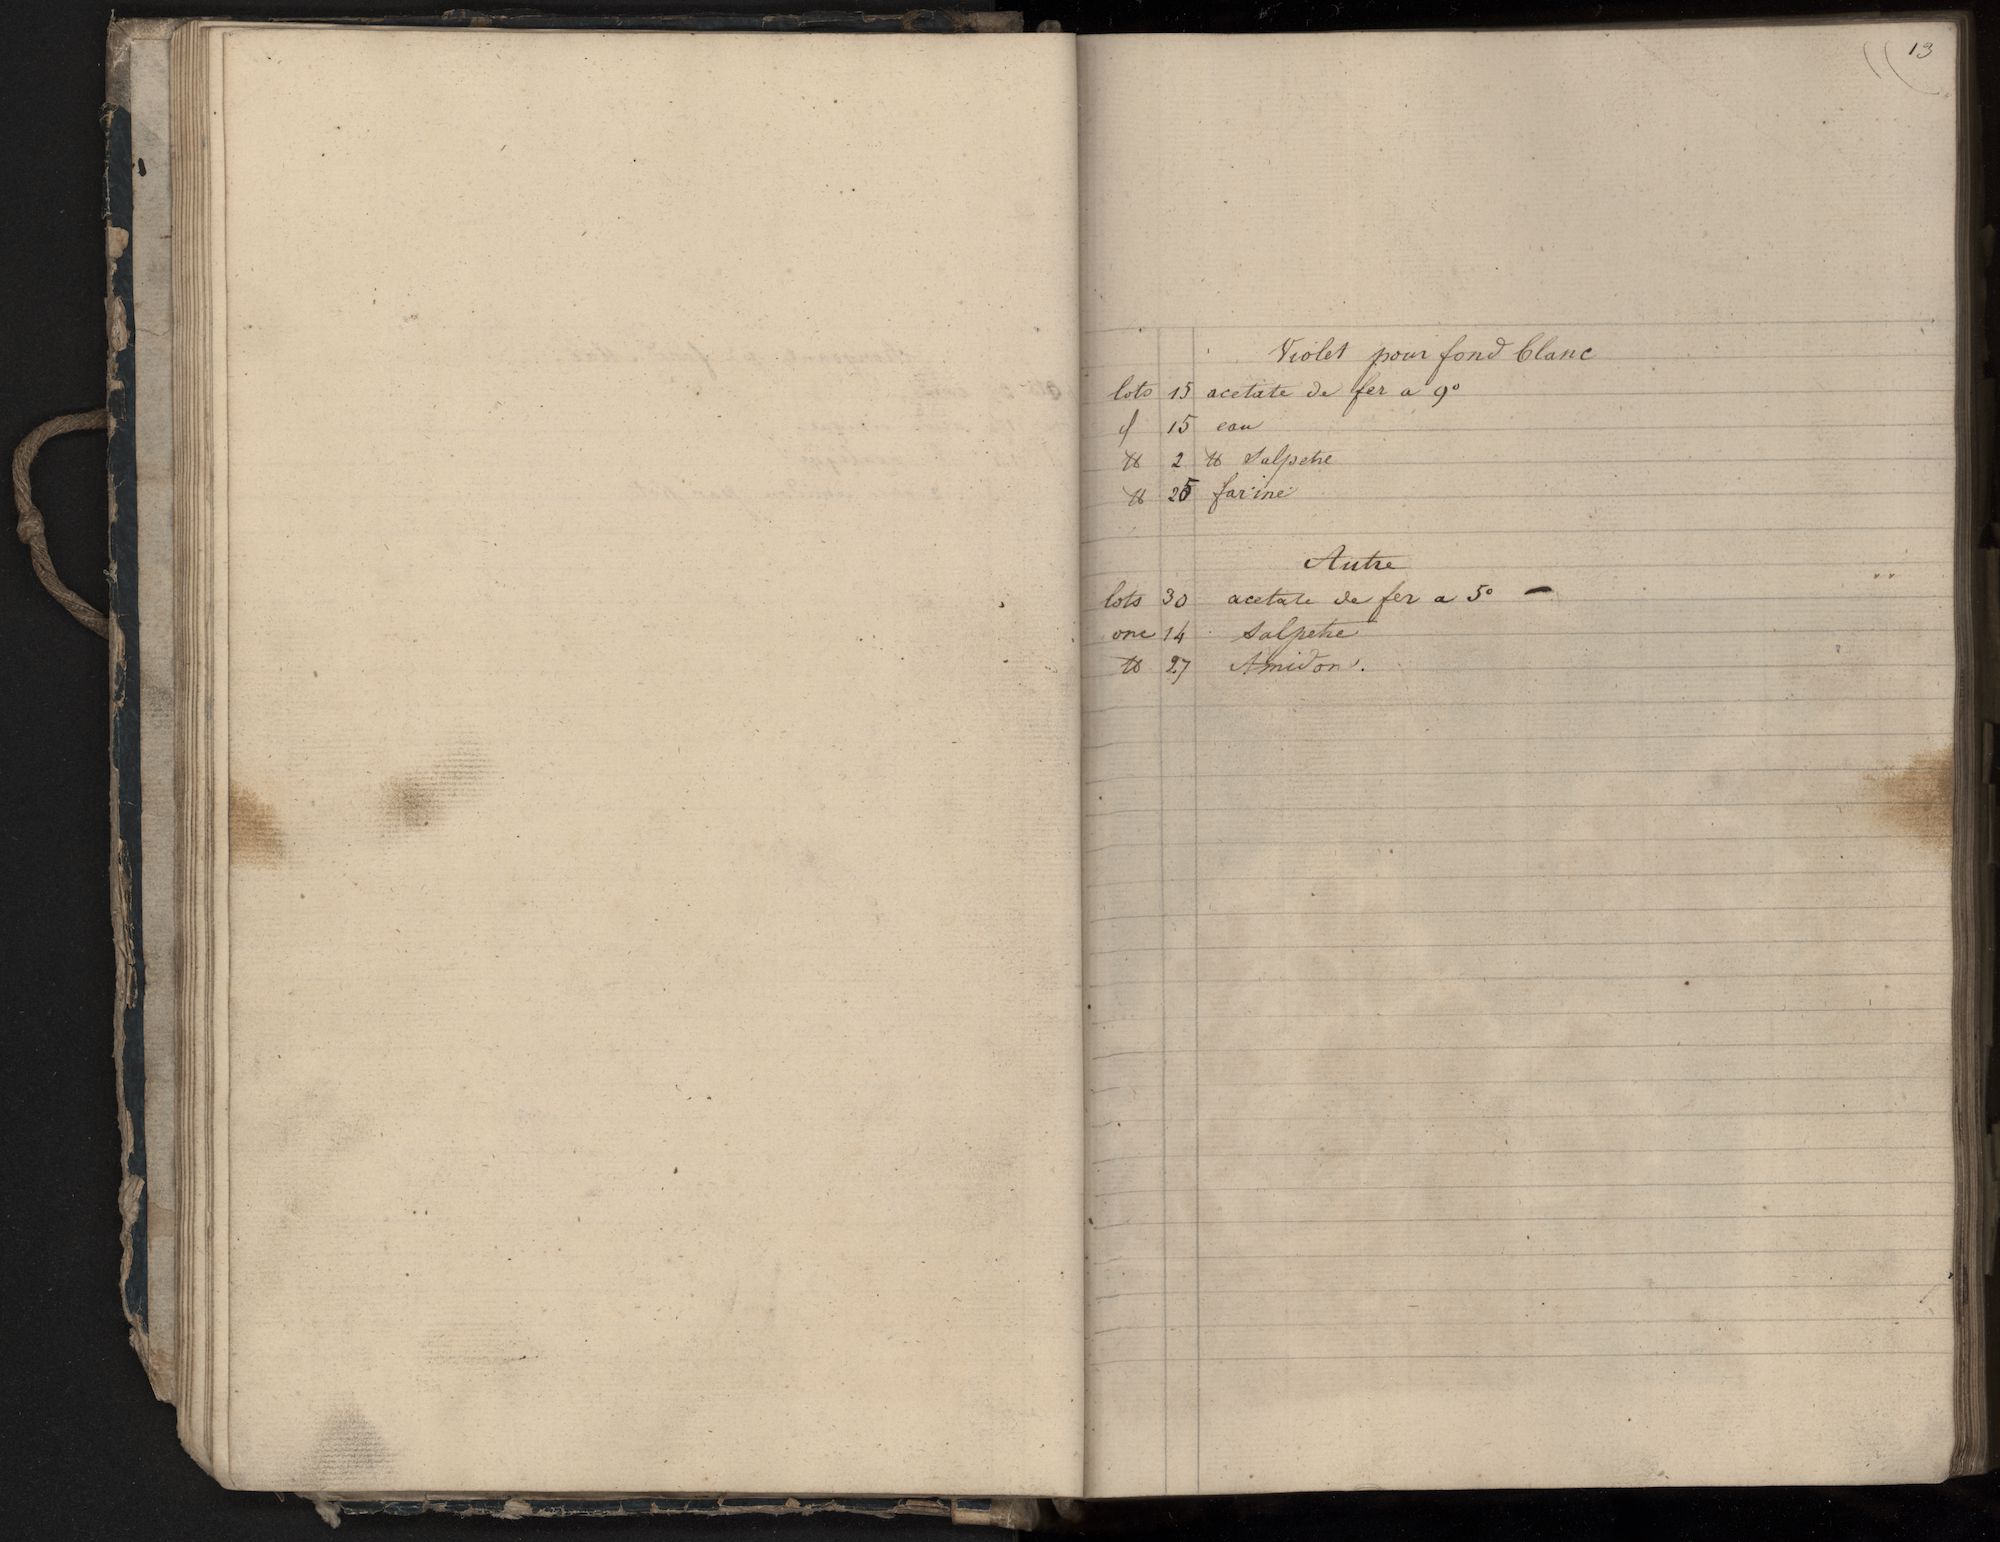 13
Violet pour fond blanc
lots 15 acetate de fer a 9°
d 15 eau
℔ 2 ℔ Salpetre
℔ 25 farine
Autre
lots 30 acetate de fer a 5° -
onc 14 Salpetre
℔ 27 Amidon.